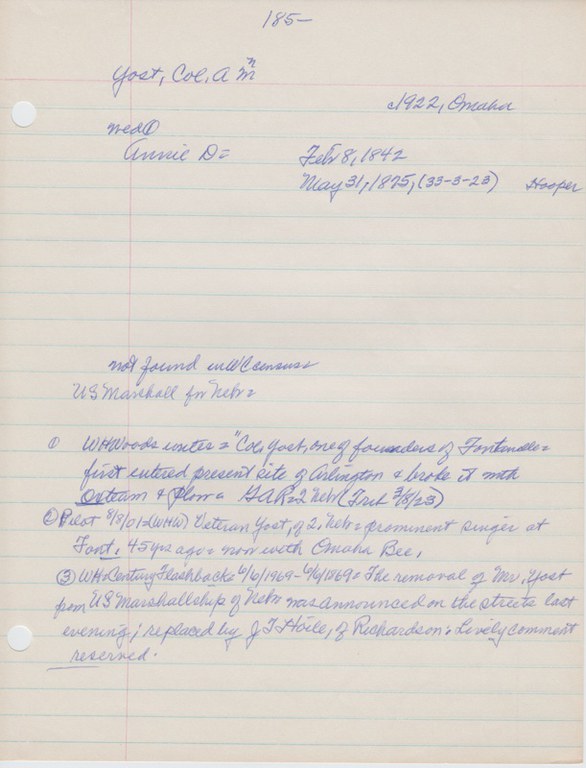 185-
Yost, Col, A m
d1922, Omaha
wed①
Annie D= Feb 8, 1842
May 31, 1875, (33-3-23) Hooper
not found in WC census=
US Marshall for Nebr=
① WHWoods writes= "Col, Yost, one of founders of Fontenelle=
first entered present site of Arlington & broke it with
Oxteam & plow= GAR=2 Nebr (Trib 3/8/23)
② Pilot 8/8/01= (WHW) Veteran Yost, of 2, Nebr= prominent singer at
Font, 45 yrs ago= now with Omaha Bee,
③ WH=Century Flashback= 6/6/1969-6/6/1869= The removal of Mr, Yost
from US Marshallship of Nebr was announced on the streets last
evening; replaced by J T Hoile, of Richardson: Lovely comment
reserved.